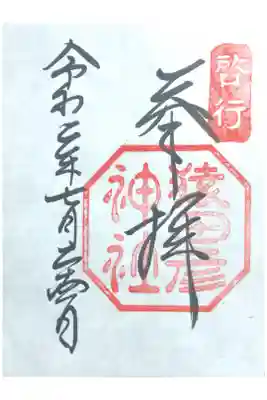 啓行
奉拝
猿田彦
神社
令和二年七月二十四日